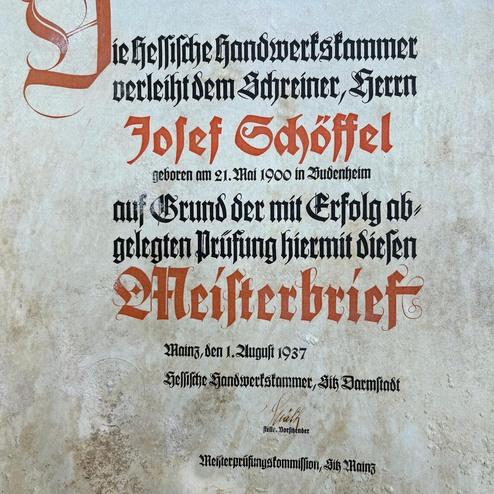 Die Hessische Handwerkskammer
verleiht dem Schreiner, Herrn
Josef Schöffel
geboren am 21. Mai 1900 in Budenheim
auf Grund der mit Erfolg ab-
gelegten Prüfung hiermit diesen
Meisterbrief
Mainz, den 1. August 1937
Hessische Handwerkskammer, Sitz Darmstadt
stellv. Vorsitzender
Meisterprüfungskommission, Sitz Mainz